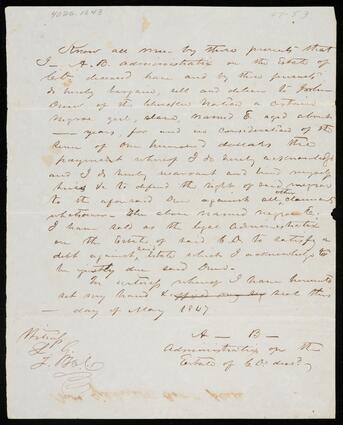 4026.1843
Know all men by these presents that
I A.B. administratrix on the Estate of
C.D. deceased have and by these presents
do hereby bargain, sell and deliver to John
Drew of the Cherokee Nation a certain
Negroe girl, slave, named E, aged about
— years, for and in consideration of the
sum of One hundred dollars the
payment whereof I do hereby acknowledge
and I do hereby warrant and bind myself
heirs &c to defend the right of said negroe
to the aforesaid Drew against all other claimants
whatsoever. The above named negroe E.
I have sold as the legal Administratrix
on the Estate of said C.D. to satisfy a
debt against said Estate which I acknowledge to
be justly due said Drew.
In witness whereof I have hereunto
set my hand & seal this
— day of May 1847
A — B —
Administratrix on the
Estate of C.D. decd.
Witness